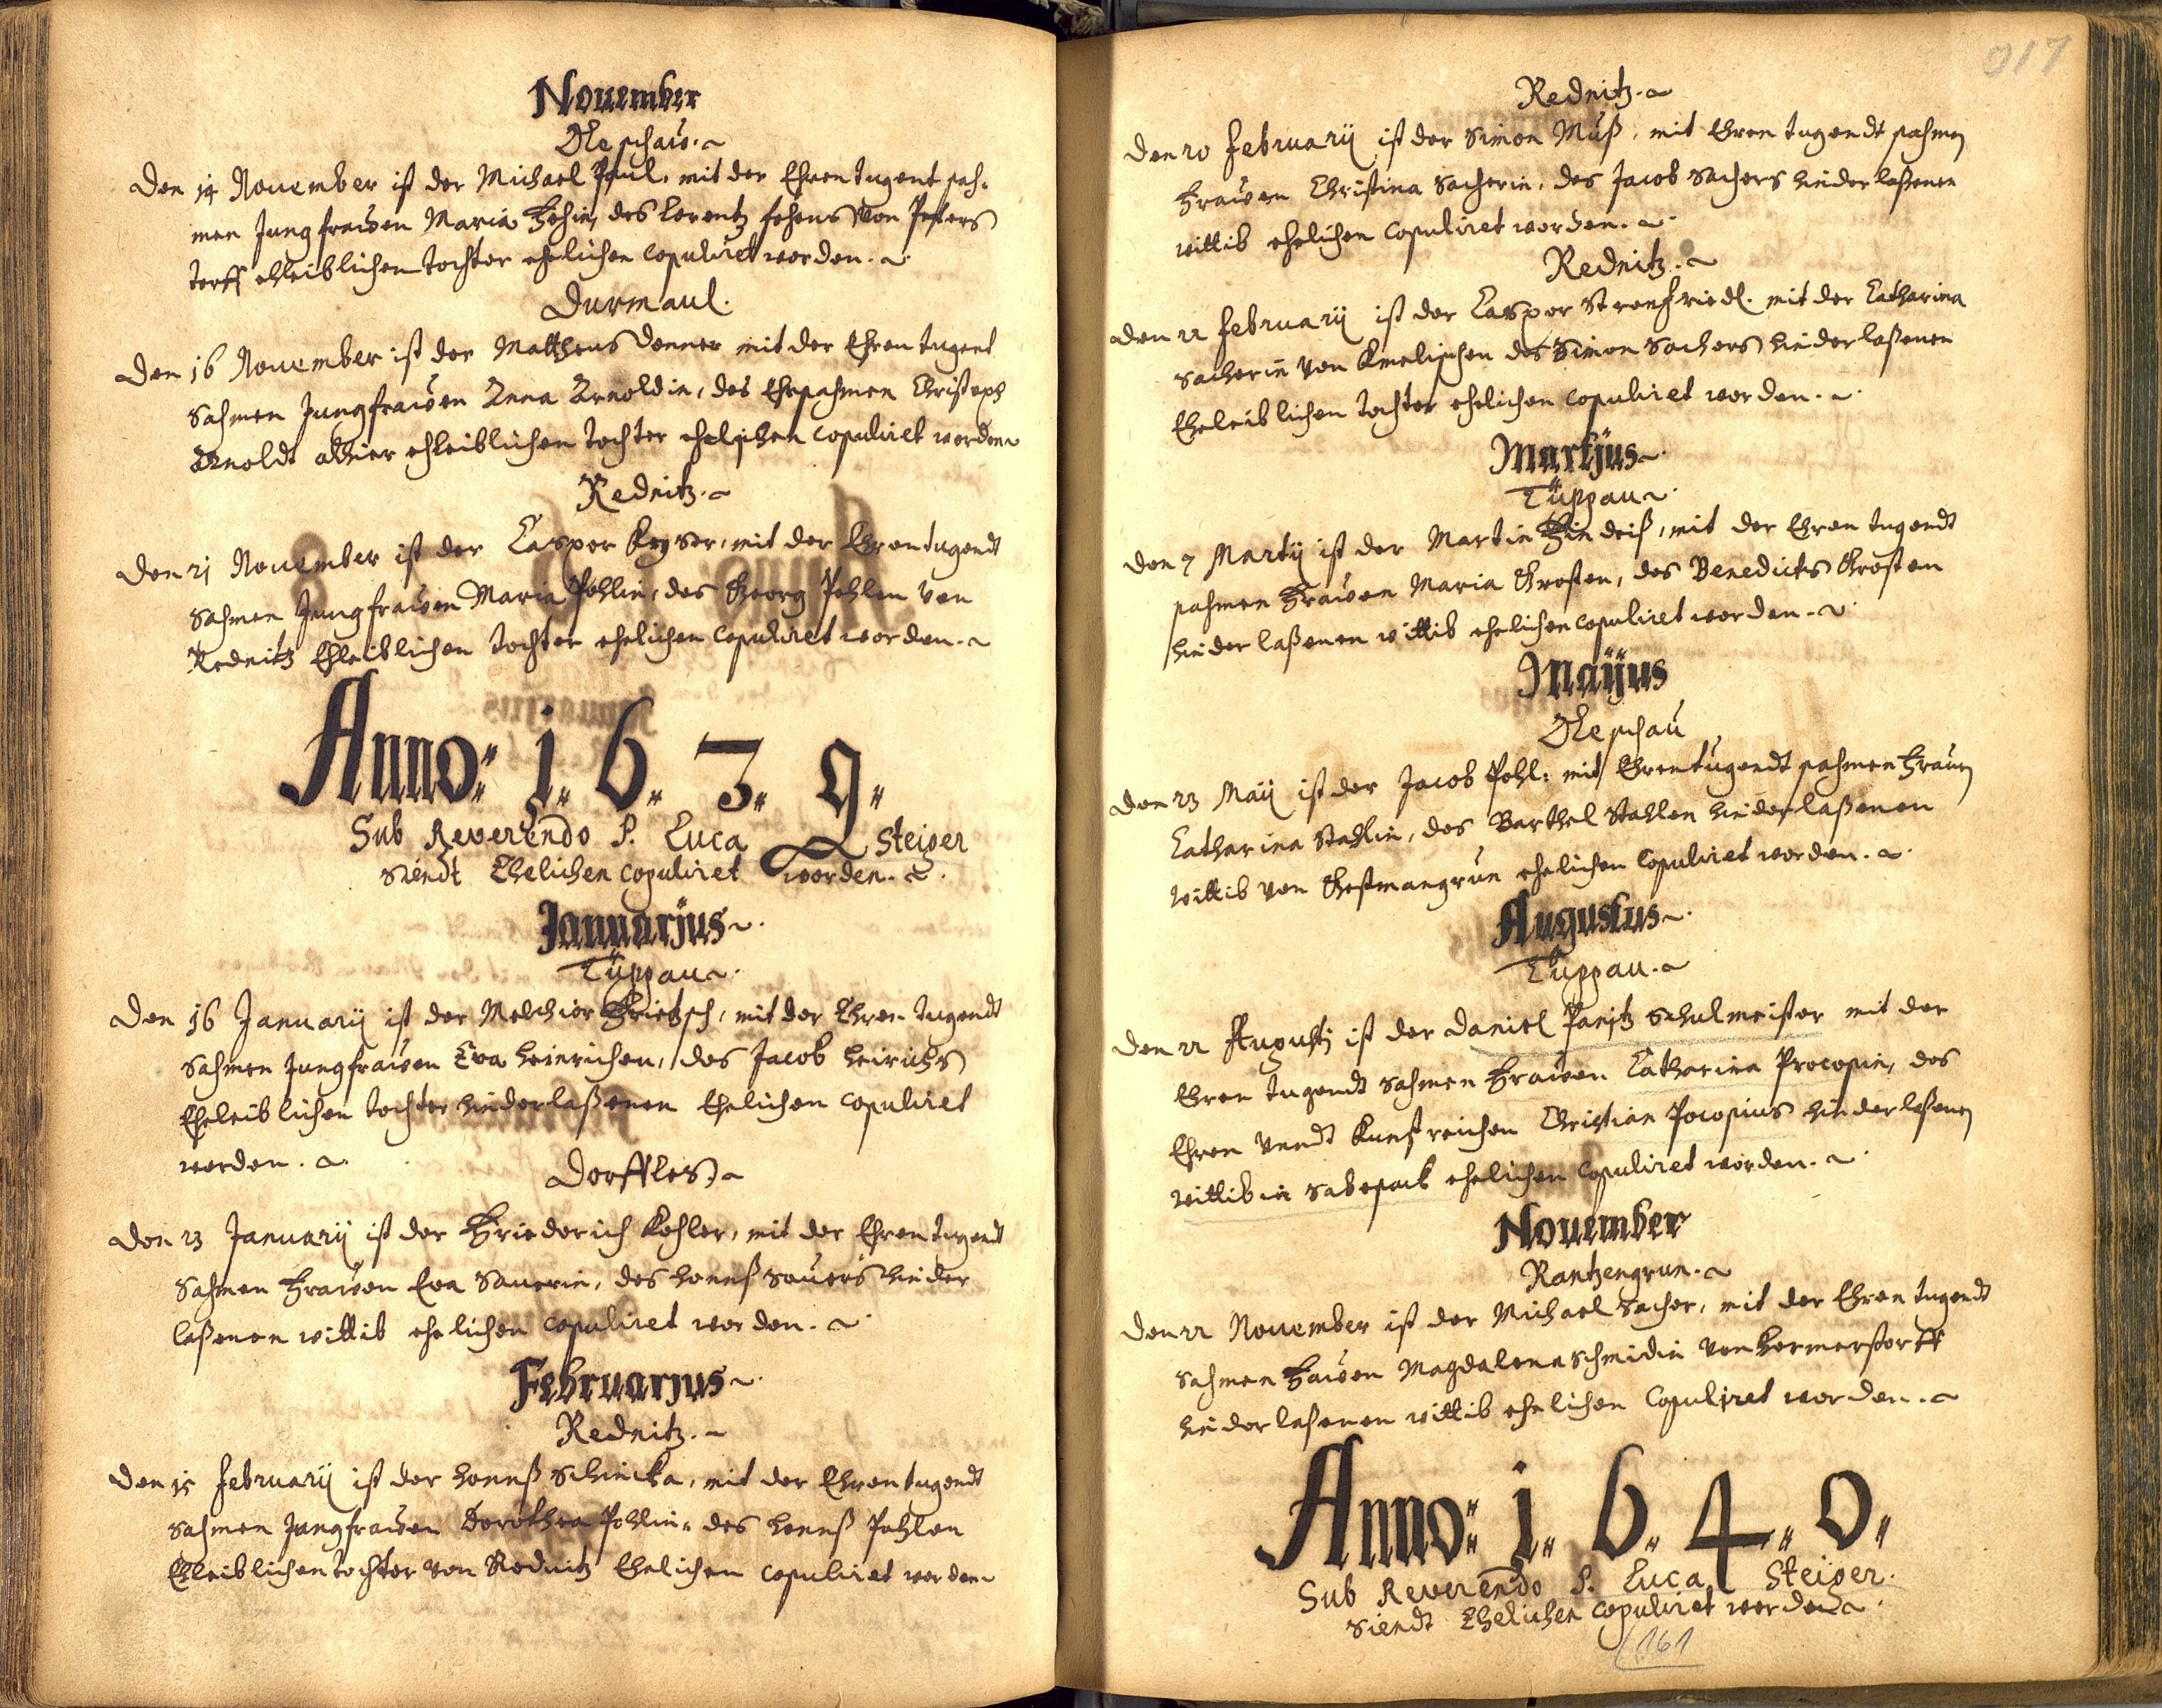 Nouember
Olepschaw.
Den 14 Nouember ist der Michael Paul, mit der Ehrentugentsah-
men Jungfrawen Maria Fehin, des Lorentz fehens von Petters
torff ehleiblichen tochter ehelichen copuliret worden.
Durmaul.
Den 16 Nouember ist der Mattheus Donner mit der Ehrentugent
Sahmen Jungfrawen Anna Arnoldin, des Ehrsahmen Christoph
Arnoldt alhier ehleiblichen tochter ehelichen copuliret worden
Rednitz.
Den 21 Nouember ist der Caspor Keyser, mit der Ehrentugendt
Sahmen Jungfrawen Maria Pohlin, des Georg Pohlen von
Rednitz Ehleiblichen tochter ehelichen copuliret worden.
Anno: 1. 6. 3. 9.
Sub Reverendo P. Luca Steiper
Siendt Ehelichen copuliret worden.
Januarjus
Tüppau
Den 16 Januarij ist der Melchior Frietsch, mit der Ehrentugendt
Sahmen Jungfrawen Eva heinrichen, des Jacob heirichs
Eheleiblichen tochter hinderlaßenen Ehelichen copuliret
worden.
Dorffles
Den 23 Januarij ist der Friederich Kohler, mit der Ehrentugendt
Sahmen Frawen Eva Sauerin, des hannß Sauers hinder
laßenen wittib ehelichen copuliret worden.
Februarjus
Rednitz.
Den 15 februarij ist der hannß Schincka, mit der Ehrentugendt
Sahmen Jungfrawen Dorothea Pohlin, des hannß Pohlen
Ehleiblichen tochter von Rednitz Ehelichen copuliret worden
917
Rednitz.
Den 20 februarij ist der Simon Muß, mit Ehrentugendtsahmen
Frawen Christina Sacherin, des Jacob Sachers hinderlaßenen
wittib ehelichen copuliret worden.
Rednitz.
Den 22 februarij ist der Caspor Strenfriedl. mit der Catharina
Sacherin von Kmelischen des Simon Sachers hinderlaßenen
Eheleiblichen tochter ehelichen copuliret worden.
Martjus
Tüppau
Den 7 Martij ist der Martin Findeiß, mit der Ehrentugendt
sahmen Frawen Maria Grosten, des Benedicts Grosten
hinderlaßenen wittib ehelichen copuliret worden.
Maijus
Olepschau
Den 23 Maij ist der Jacob Pohl: mit Ehrentugendtsahmen Frauen
Catharina Stahlin, des Barthel Stahlen hinderlaßenen
wittib von Gestmangrun ehelichen copuliret worden.
Augustus
Tüppau.
Den 22 Augustj ist der Daniel Panitz Schulmeister mit der
Ehrentugendt Sahmen Frawen Catharina Procopin, des
Ehren vnndt Kunstreichen Christian Pocopius hinderlaßenen
wittib in Sabespack ehelichen copuliret worden.
Nouember
Rantzengrun.
Den 22 Nouember ist der Michael Sacher, mit der Ehrentugendt
Sahmen Fawen Magdalena Schmidin von Hermerstorff
hinderlaßenen wittib ehelichen copuliret worden.
Anno: 1. 6. 4. 0.
Sub Reverendo P. Luca Steiper.
Siendt Ehelichen copuliret worden
161